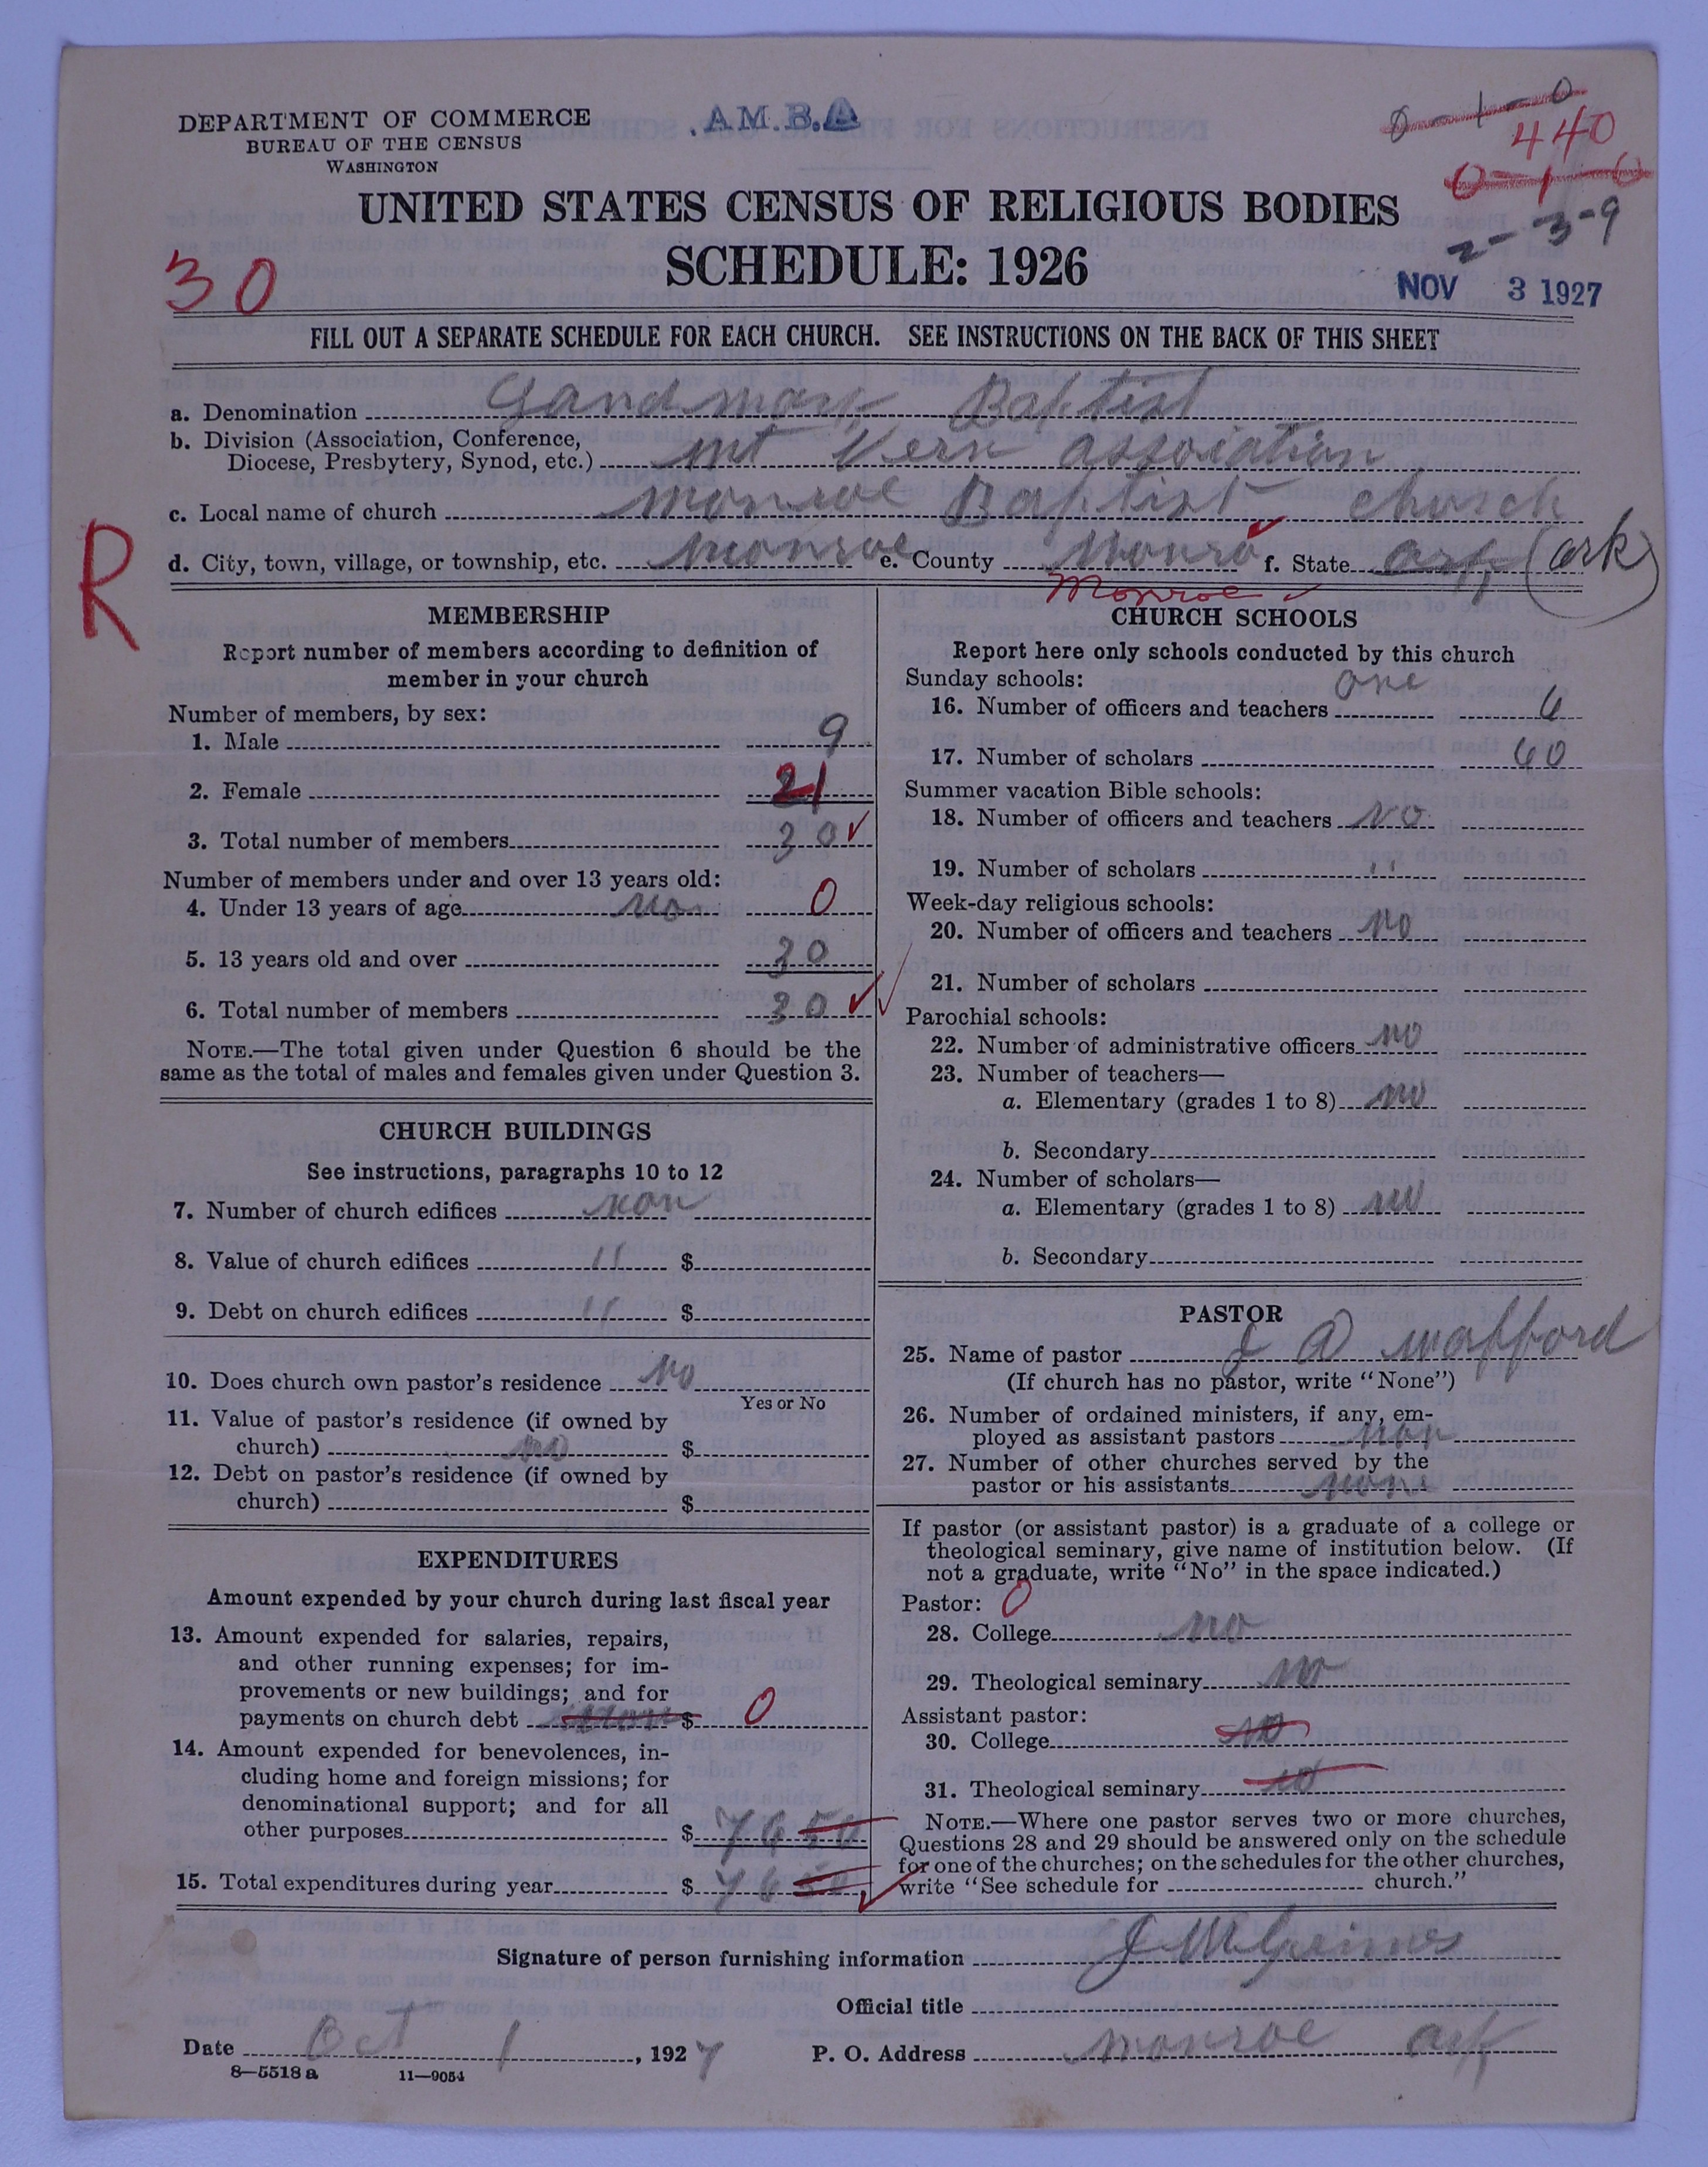 DEPARTMENT OF COMMERCE
BUREAU OF THE CENSUS
WASHINGTON
A.M.B.A
0-1-0
440
0-1-0
2-3-9
UNITED STATES CENSUS OF RELIGIOUS BODIES
SCHEDULE: 1926
30
NOV 3 1927
FILL OUT A SEPARATE SCHEDULE FOR EACH CHURCH. SEE INSTRUCTIONS ON THE BACK OF THIS SHEET
a. Denomination Land mark Baptist
b. Division (Association, Conference,
Diocese, Presbytery, Synod, etc.) mt Vern assoiation
c. Local name of church monroe Baptist church
d. City, town, village, or township, etc. monroe e. County Monro f. State ark (ark)
Monroe
R
MEMBERSHIP
Report number of members according to definition of
member in your church
Number of members, by sex:
1. Male 9
2. Female 21
3. Total number of members 30
Number of members under and over 13 years old:
4. Under 13 years of age non 0
5. 13 years old and over 30
6. Total number of members 30
NOTE.—The total given under Question 6 should be the
same as the total of males and females given under Question 3.
CHURCH BUILDINGS
See instructions, paragraphs 10 to 12
7. Number of church edifices non
8. Value of church edifices 11 $
9. Debt on church edifices 11 $
10. Does church own pastor's residence No
Yes or No
11. Value of pastor's residence (if owned by
church) no $
12. Debt on pastor's residence (if owned by
church) $
EXPENDITURES
Amount expended by your church during last fiscal year
13. Amount expended for salaries, repairs,
and other running expenses; for im-
provements or new buildings; and for
payments on church debt $ 0
14. Amount expended for benevolences, in-
cluding home and foreign missions; for
denominational support; and for all
other purposes $ 76 50
15. Total expenditures during year $ 76 50
CHURCH SCHOOLS
Report here only schools conducted by this church
Sunday schools: one
16. Number of officers and teachers 6
17. Number of scholars 60
Summer vacation Bible schools:
18. Number of officers and teachers No
19. Number of scholars "
Week-day religious schools:
20. Number of officers and teachers No
21. Number of scholars
Parochial schools:
22. Number of administrative officers no
23. Number of teachers—
a. Elementary (grades 1 to 8) no
b. Secondary
24. Number of scholars—
a. Elementary (grades 1 to 8) no
b. Secondary
PASTOR
25. Name of pastor J D Wafford
(If church has no pastor, write "None")
26. Number of ordained ministers, if any, em-
ployed as assistant pastors non
27. Number of other churches served by the
pastor or his assistants none
If pastor (or assistant pastor) is a graduate of a college or
theological seminary, give name of institution below. (If
not a graduate, write "No" in the space indicated.)
Pastor: 0
28. College no
29. Theological seminary no
Assistant pastor:
30. College no
31. Theological seminary no
NOTE.—Where one pastor serves two or more churches,
Questions 28 and 29 should be answered only on the schedule
for one of the churches; on the schedules for the other churches,
write "See schedule for church."
Signature of person furnishing information J M Grimes
Official title
Date Oct 1, 1927 P. O. Address monroe ark
8—5518 a 11—9054